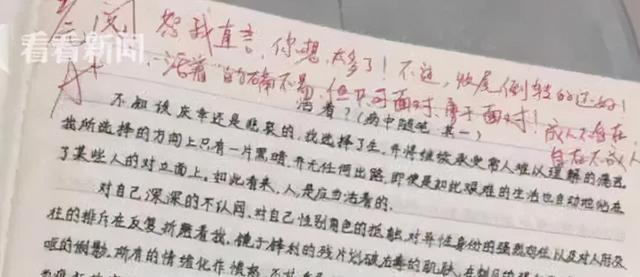 已阅
看看新闻
A+
恕我直言，你想太多了！不过，收尾倒转的还好！
活着 的确不易，但只可面对，勇于面对！成人不自在
自在不成人
活着？（病中随笔 其一）
不知该庆幸还是悲哀的，我选择了生，并将继续承受常人难以理解的痛苦
我所选择的方向上只有一片黑暗，并无任何出路，即使是如此艰难的生活也自动地站在
了某些人的对立面上。如此看来，人是应当活着的。
对自己深深的不认同，对自己性别角色的抵触，对异性身份的强烈
往的排斥在反复折磨着我，镜子锋利的残片划破
呕的侧影，所有的情绪化作愤怒